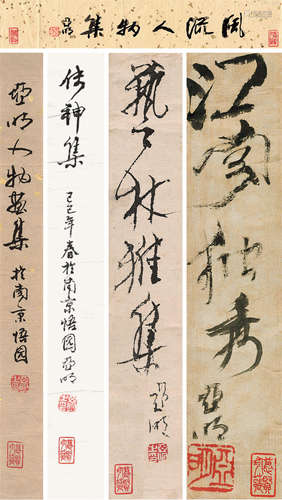 風流人物集 亞明
江南独秀 亞明
藝林雅集 亞明
傳神集 己巳年春於南京悟園亞明
亞明人物畫集 於南京悟園
亞明